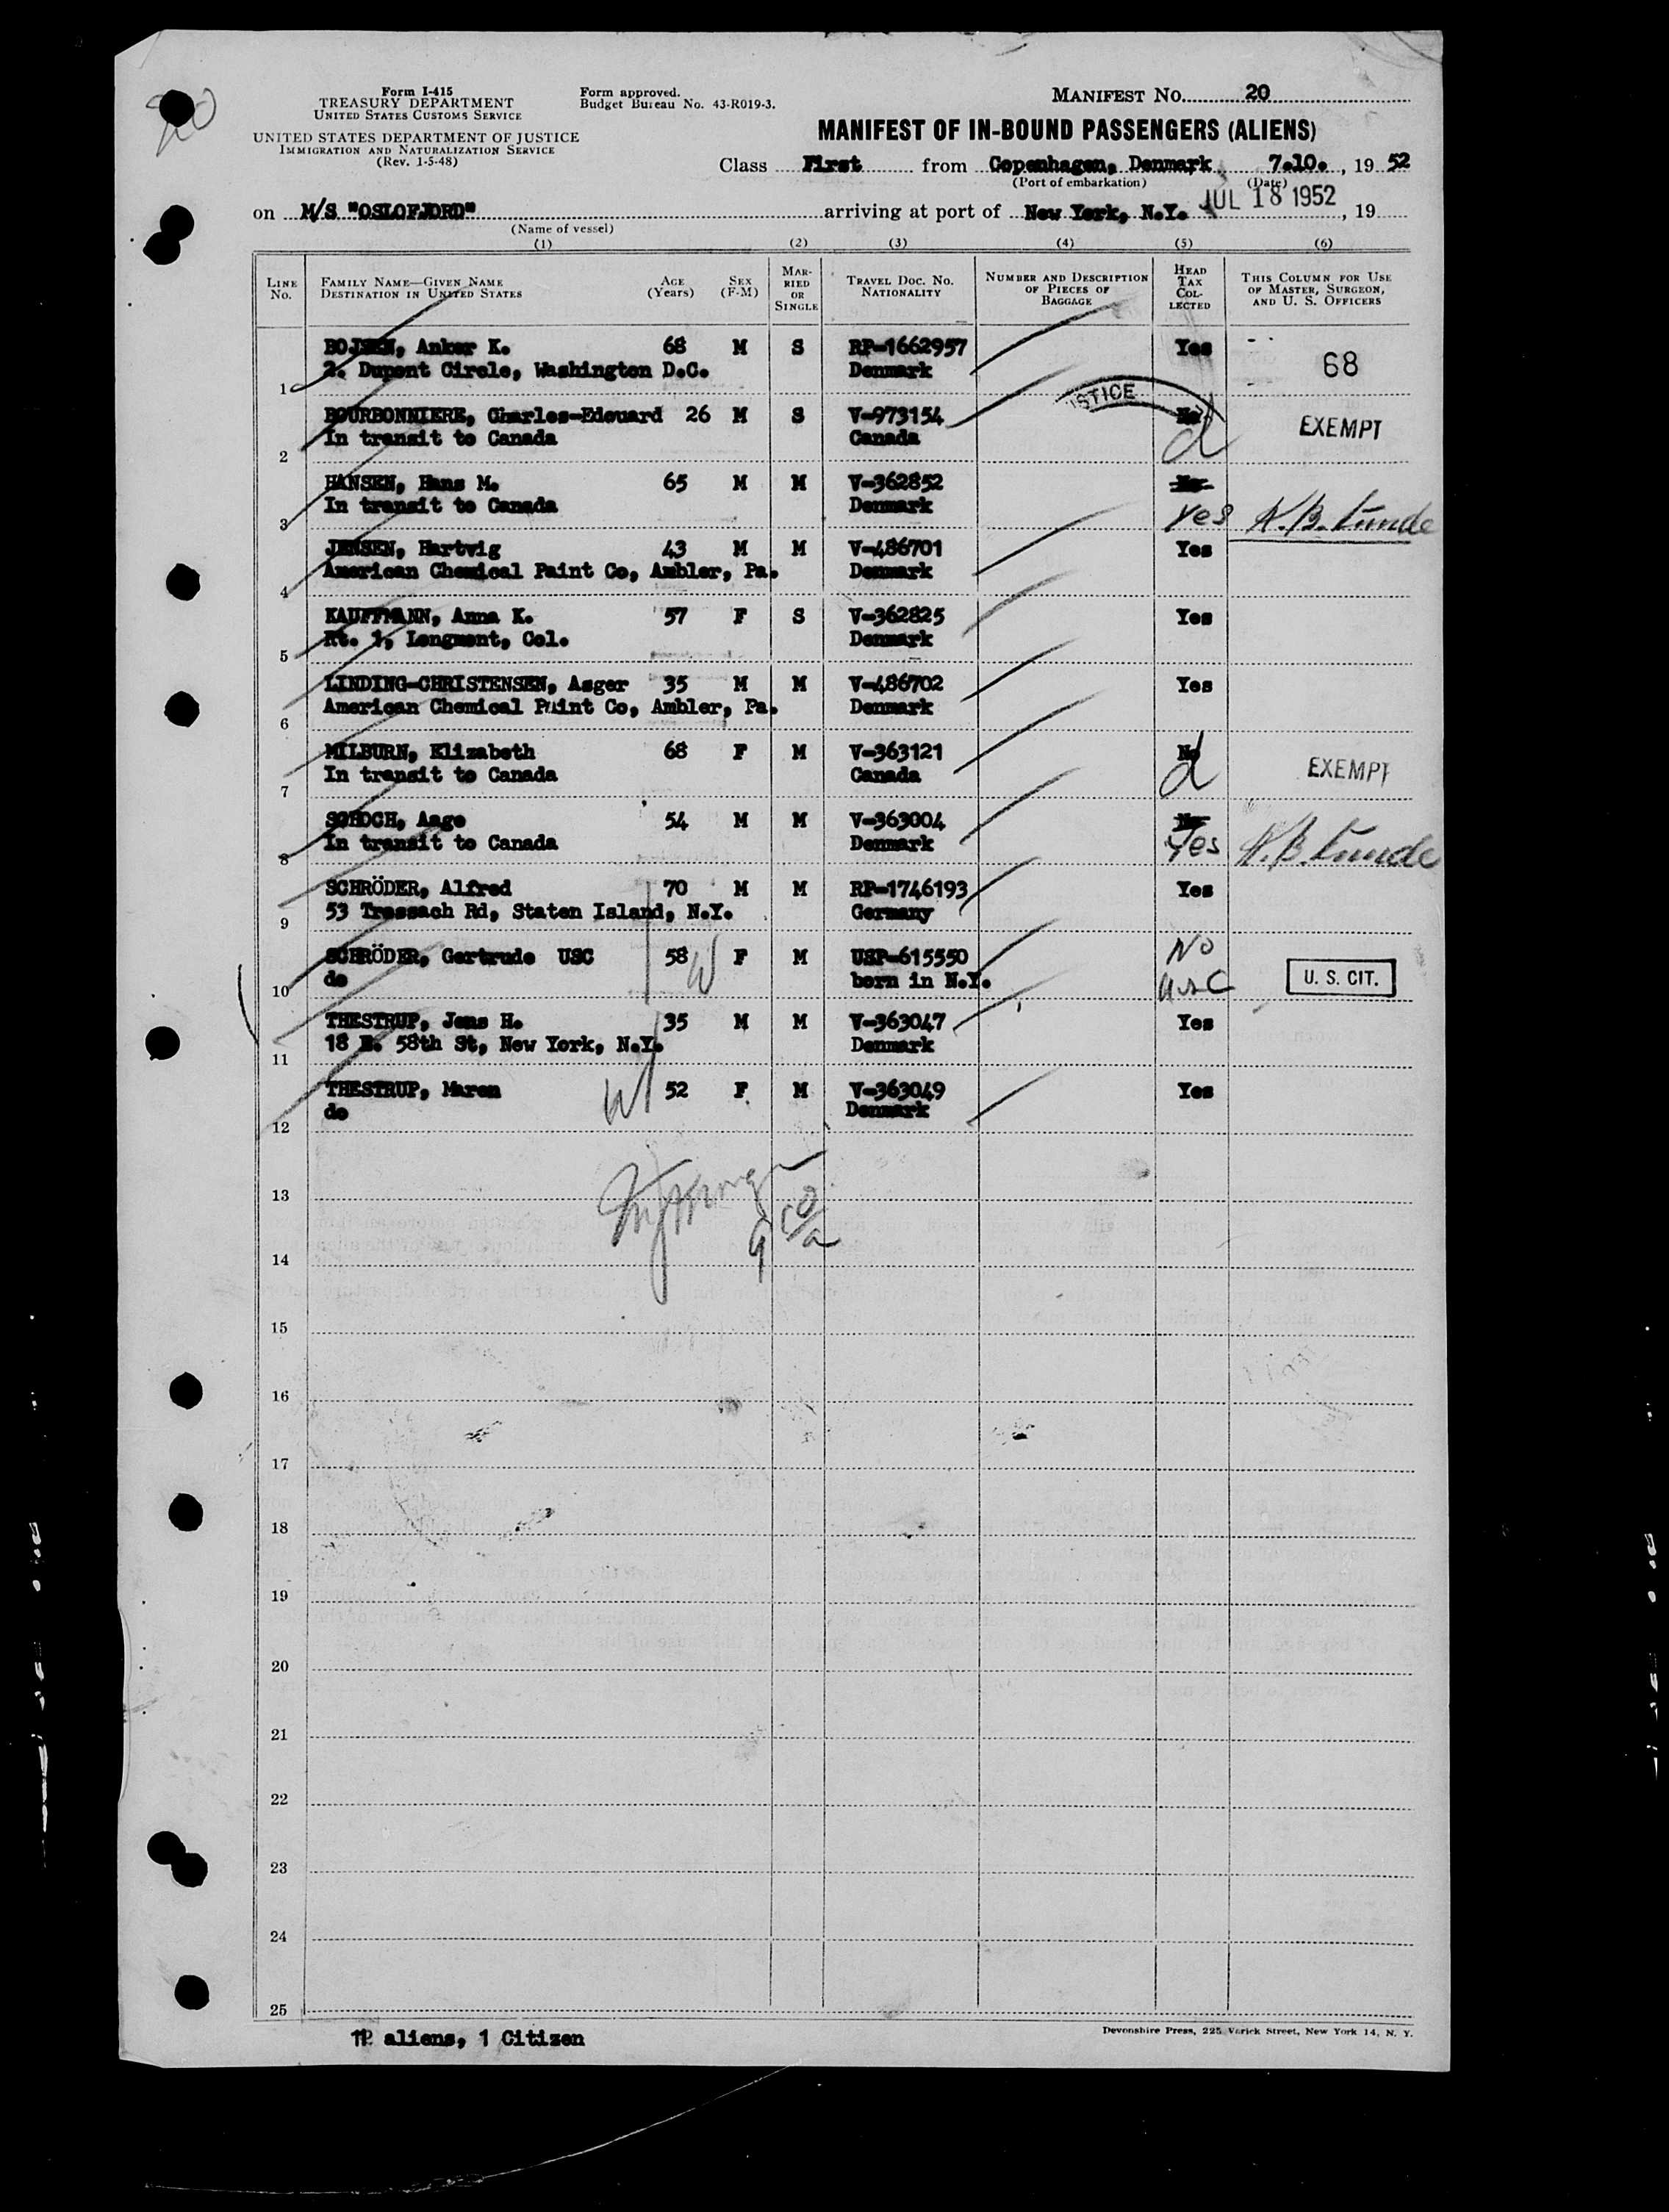 20
Form I-415
TREASURY DEPARTMENT
UNITED STATES CUSTOMS SERVICE
UNITED STATES DEPARTMENT OF JUSTICE
IMMIGRATION AND NATURALIZATION SERVICE
(Rev. 1-5-48)
Form approved.
Budget Bureau No. 43-R019-3.
MANIFEST NO. 20
MANIFEST OF IN-BOUND PASSENGERS (ALIENS)
Class First from Copenhagen, Denmark 7.10. , 19 52
(Port of embarkation) (Date)
on M/S "OSLOFJORD" arriving at port of New York, N.Y. JUL 18 1952 , 19
(Name of vessel)
(1) (2) (3) (4) (5) (6)
LINE NO. FAMILY NAME—GIVEN NAME DESTINATION IN UNITED STATES AGE (Years) SEX (F-M) MARRIED OR SINGLE TRAVEL DOC. NO. NATIONALITY NUMBER AND DESCRIPTION OF PIECES OF BAGGAGE HEAD TAX COLLECTED THIS COLUMN FOR USE OF MASTER, SURGEON, AND U. S. OFFICERS
BOJSEN, Anker K. 68 M S RP-1662957 Yes 68
1 2. Dupont Circle, Washington D.C. Denmark
STICE
BOURBONNIERE, Charles-Edouard 26 M S V-973154 No EXEMPT
2 In transit to Canada Canada d
HANSEN, Hans M. 65 M M V-362852 No
3 In transit to Canada Denmark Yes N.B. Lunde
JENSEN, Hartvig 43 M M V-486701 Yes
4 American Chemical Paint Co, Ambler, Pa. Denmark
KAUFFMANN, Anna K. 57 F S V-362825 Yes
5 Rt. 1, Longmont, Col. Denmark
LINDING-CHRISTENSEN, Asger 35 M M V-486702 Yes
6 American Chemical Paint Co, Ambler, Pa. Denmark
MILBURN, Elizabeth 68 F M V-363121 No EXEMPT
7 In transit to Canada Canada d
SCHOCH, Aage 54 M M V-363004 No
8 In transit to Canada Denmark Yes N.B. Lunde
SCHRÖDER, Alfred 70 M M RP-1746193 Yes
9 53 Trossach Rd, Staten Island, N.Y. Germany
SCHRÖDER, Gertrude USC 58 W F M USP-615550 No
10 do born in N.Y. USC U. S. CIT.
THESTRUP, Jens H. 35 M M V-363047 Yes
11 18 E. 58th St, New York, N.Y. Denmark
THESTRUP, Maren W 52 F M V-363049 Yes
12 do Denmark
13
14
15
16
17
18
19
20
21
22
23
24
25
aliens, 1 Citizen
Devonshire Press, 225 Varick Street, New York 14, N. Y.